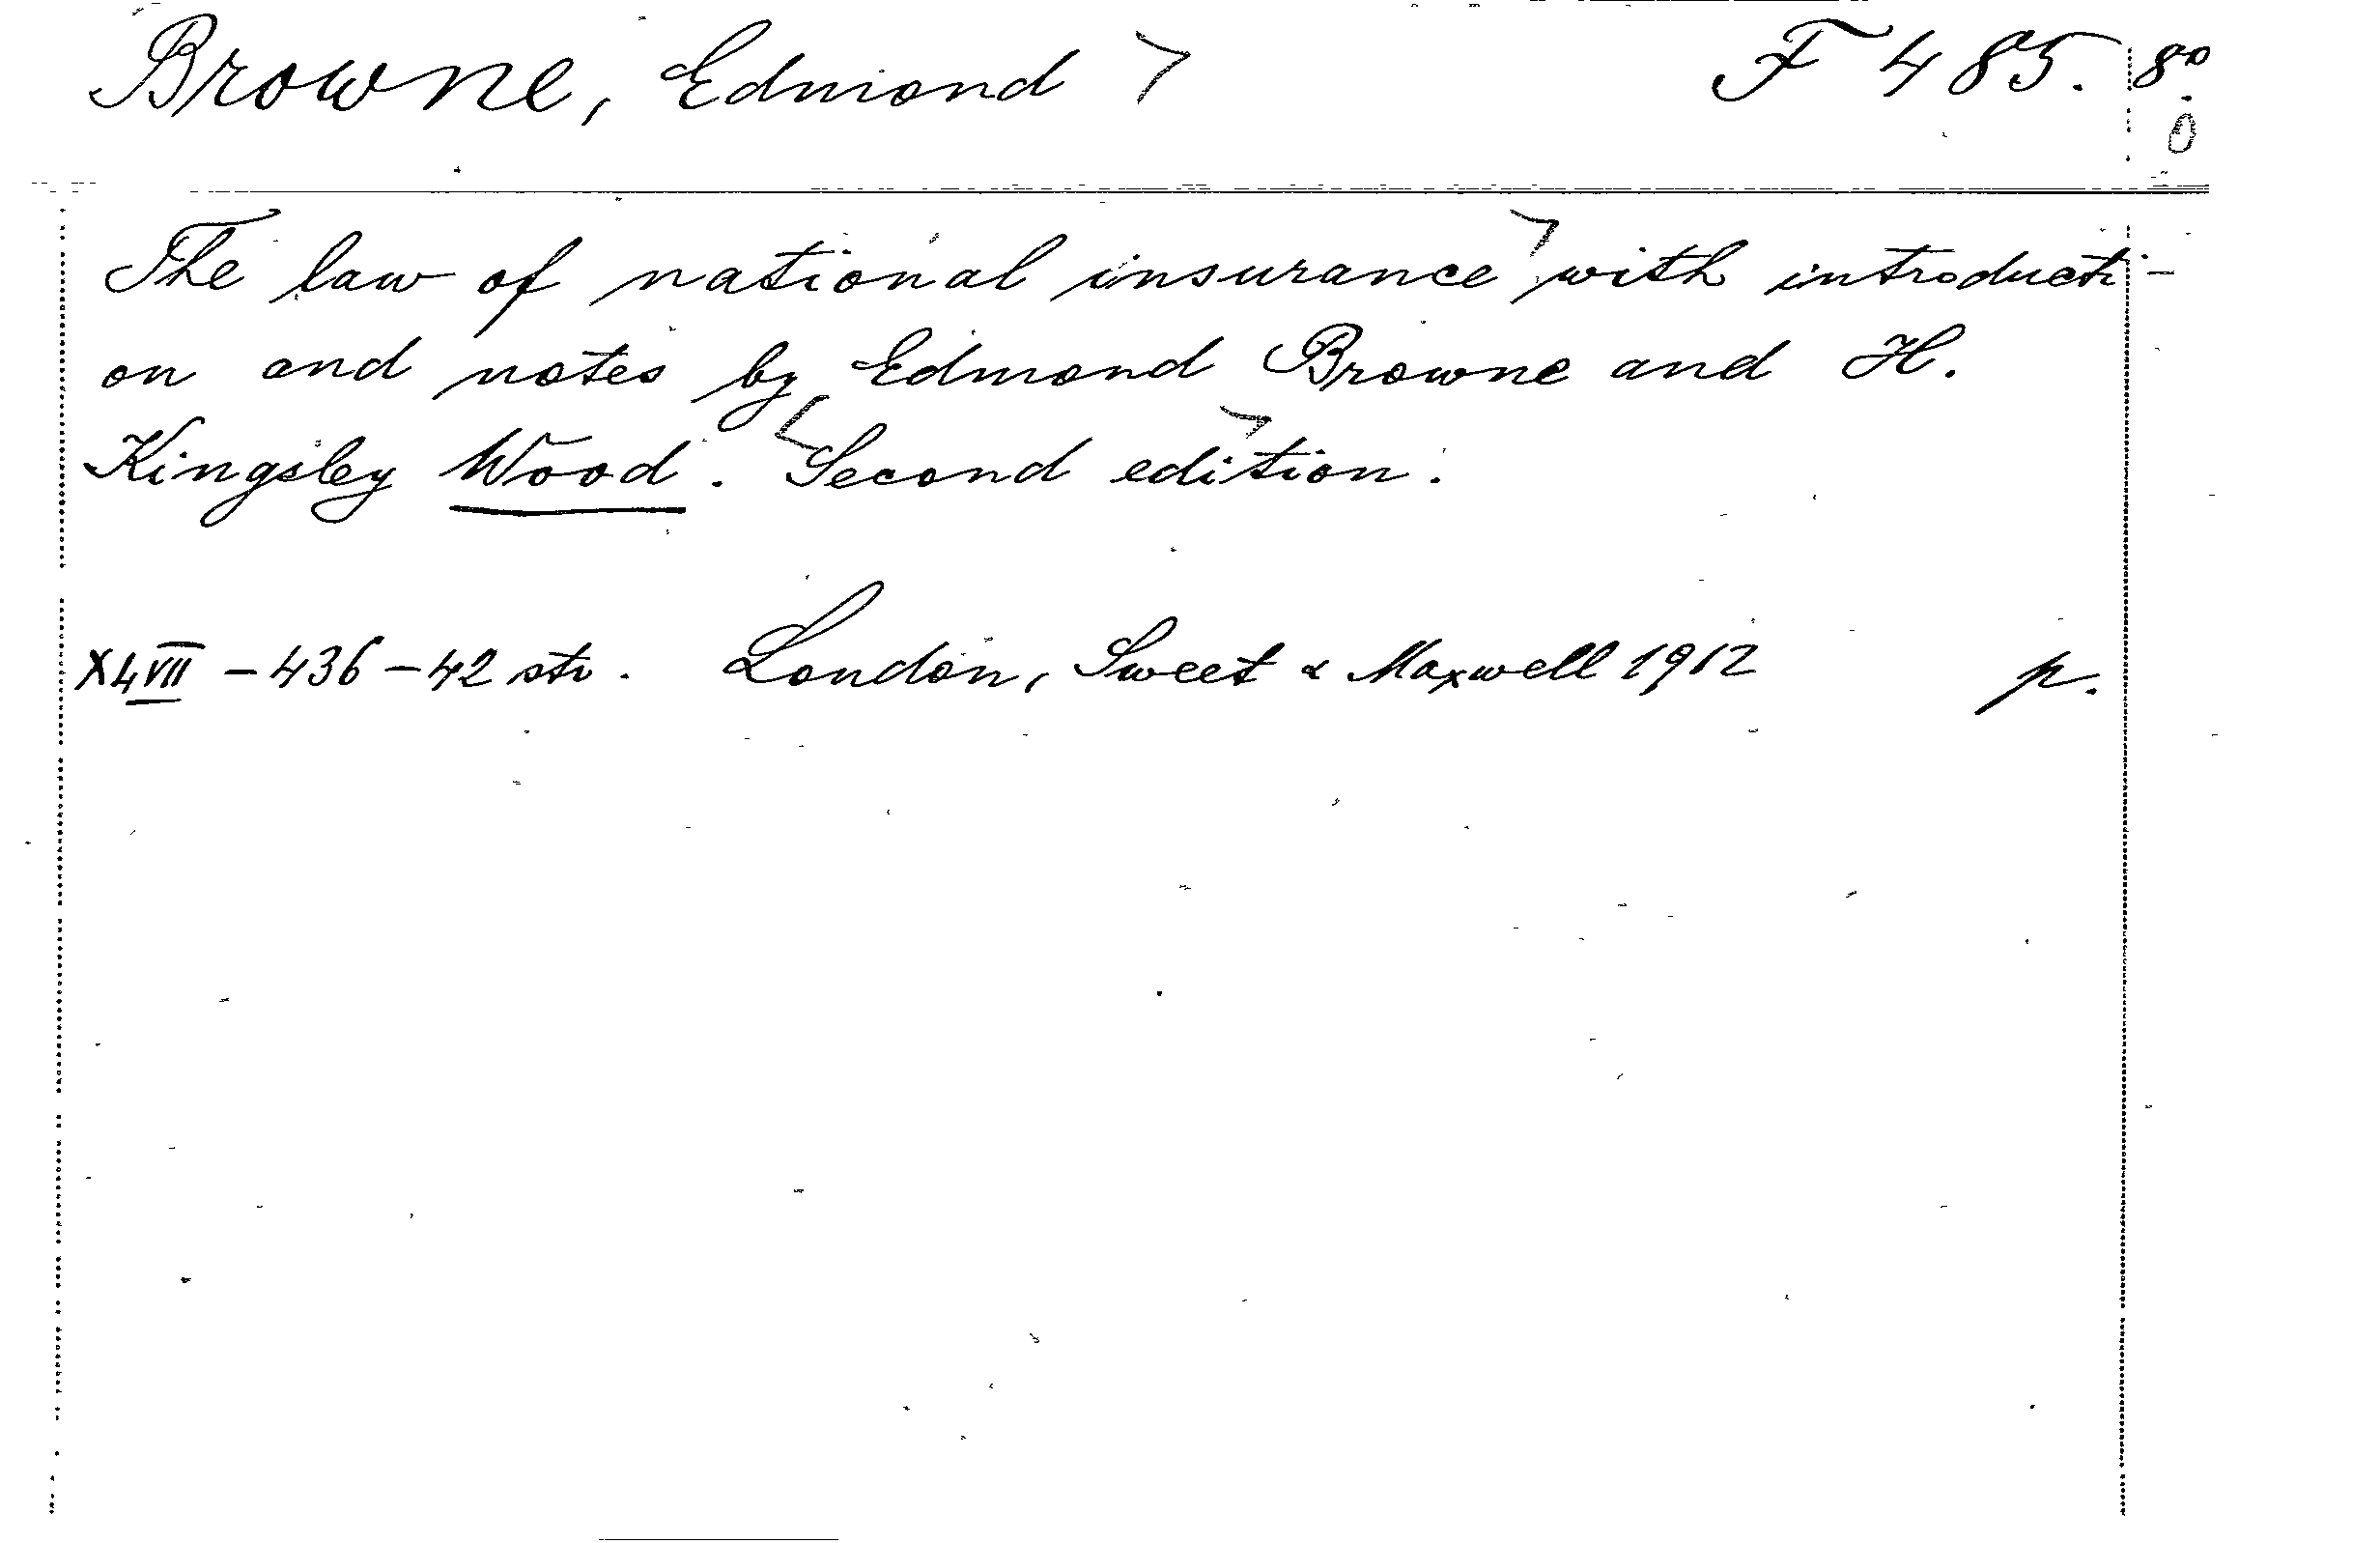 Browne, Edmond F 485. 8º
The law of national insurance with introducti-
on and notes by Edmond Browne and H.
Kingsley Wood. Second edition.
XLVII - 436 - 42 str. London, Sweet & Maxwell 1912 p.